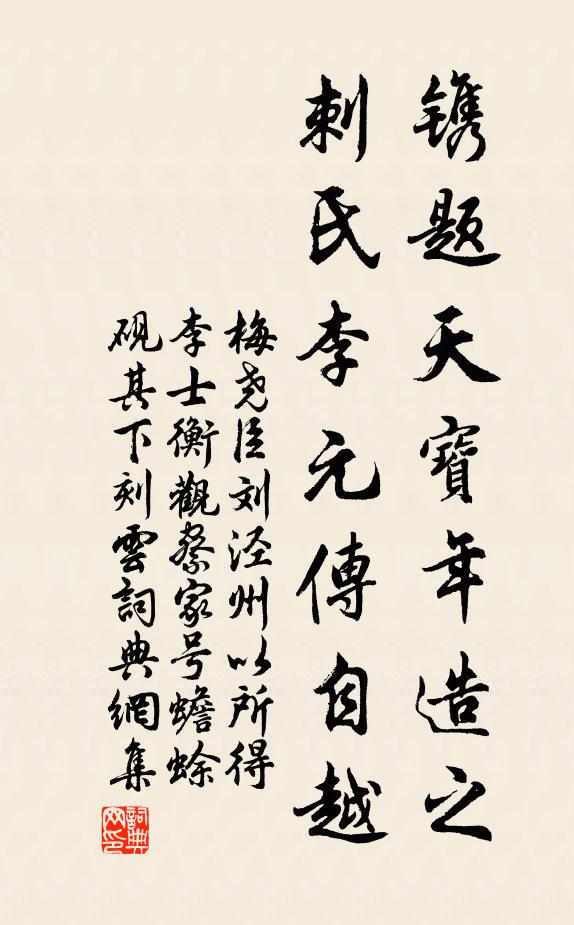 镌题天寶年造之
刺氏李元傳自越
梅尧臣刘泾州以所得
李士衡觀察家号蟾蜍
硯其下刻雲詞典網集
詞典网印